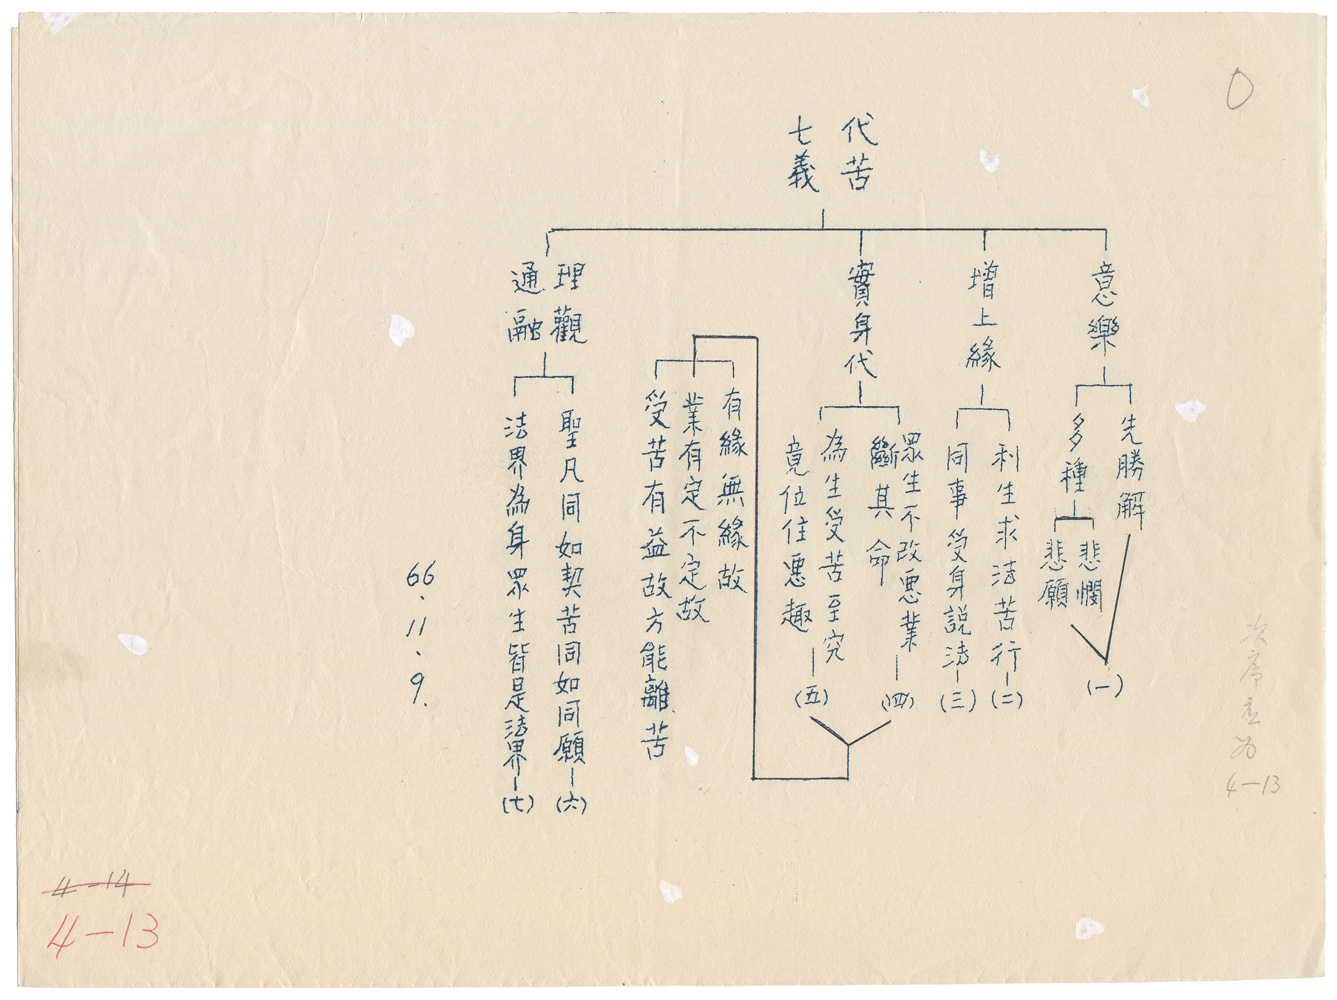 代苦
七義
意樂
先勝解
多種
悲憫
悲願
(一)
增上緣
利生求法苦行-(二)
同事受身說法-(三)
實身代
眾生不改惡業
斷其命
(四)
為生受苦至究
竟位住惡趣
(五)
有緣無緣故
業有定不定故
受苦有益故方能離苦
理觀
通融
聖凡同如契苦同如同願-(六)
法界為身眾生皆是法界-(七)
66.11.9.
0
次序立为
4-13
4-14
4-13